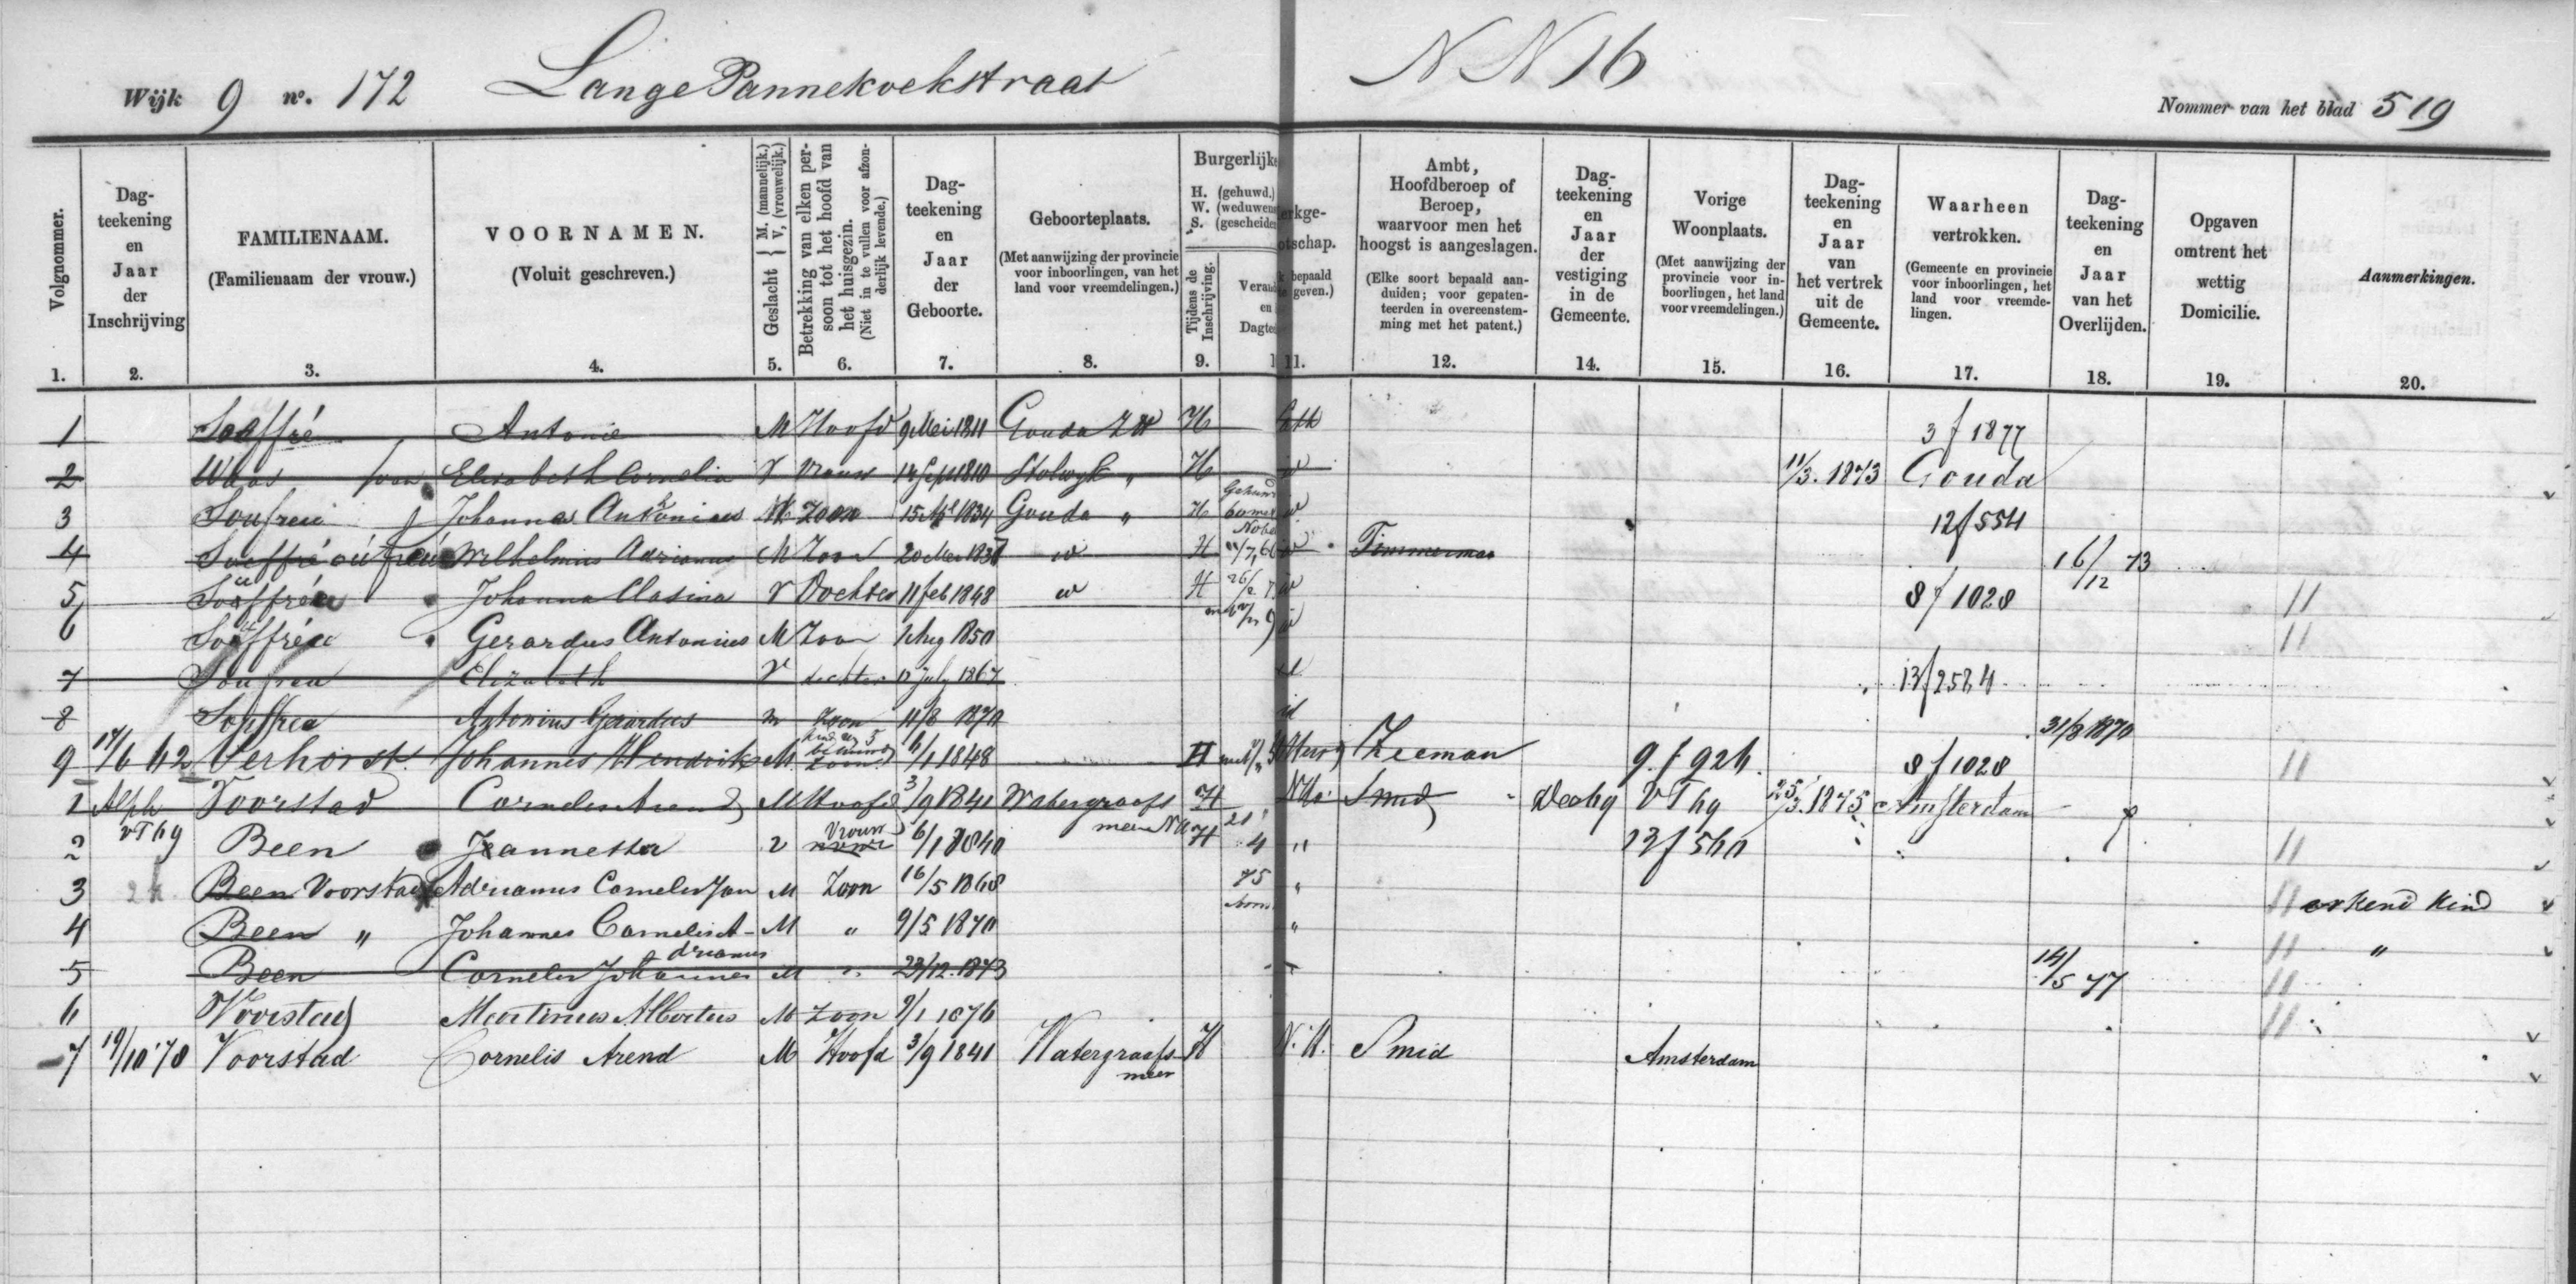 Wijk 9 no. 172 Lange Pannekoekstraat NN 16 Nommer van het blad 519
Volgnommer. 1.
Dag-teekening en Jaar der Inschrijving 2.
FAMILIENAAM. (Familienaam der vrouw.) 3.
VOORNAMEN. (Voluit geschreven.) 4.
Geslacht { M. (mannelijk.) V. (vrouwelijk.) 5.
Betrekking van elken per-soon tot het hoofd van het huisgezin. (Niet in te vullen voor afzon-derlijk levende.) 6.
Dag-teekening en Jaar der Geboorte. 7.
Geboorteplaats. (Met aanwijzing der provincie voor inboorlingen, van het land voor vreemdelingen.) 8.
Burgerlijke
H. (gehuwd.)
W. (weduwen
S. (gescheiden
Tijdens de Inschrijving. 9.
Verand en Dagte 1
erkge-otschap. k bepaald geven.) 11.
Ambt, Hoofdberoep of Beroep, waarvoor men het hoogst is aangeslagen. (Elke soort bepaald aan-duiden; voor gepaten-teerden in overeenstem-ming met het patent.) 12.
Dag-teekening en Jaar der vestiging in de Gemeente. 14.
Vorige Woonplaats. (Met aanwijzing der provincie voor in-boorlingen, het land voor vreemdelingen.) 15.
Dag-teekening en Jaar van het vertrek uit de Gemeente. 16.
Waarheen vertrokken. (Gemeente en provincie voor inboorlingen, het land voor vreemde-lingen. 17.
Dag-teekening en Jaar van het Overlijden. 18.
Opgaven omtrent het wettig Domicilie. 19.
Aanmerkingen. 20.
1 Soeffré Antonie M Hoofd 9 Mei 1811 Gouda ZH H 3 f 1877
2 Waas van Elisabeth Cornelia V Vrouw 14 Sept 1810 Stolwyk " H 11/3. 1873 Gouda
3 Soufreu Johannes Anthonius M Zoon 15 1834 Gouda " H 12 f 554
4 Soeffré Wilhelmus Adrianus M Zoon 20 1837 H Timmerman 16/12 73
5 Soeffréu Johanna Clasina V Dochter 11 feb 1848 H 8 f 1028 "
6 Soeffréu Gerardus Antonius M Zoon 1 Aug 1850 "
7 Soufreu Elizabeth V dochter July 1867 13 f 2584
8 Souffreu Antonius Gerardus m Zoon 11/8 1870 id 31/8 1870
9 17/6 62 Verhorst Johannes Hendrik M Zoon 1848 H Zeeman 9 f 926. 8 f 1028 "
1 Alph vThg Voorstad Cornelis Arend M Hoofd 3/9 1841 Watergraafs meer NH H Smid vThg 25/3. 1875 Amsterdam
2 Been Jeannetta V Vrouw 6/1 1840 H " 12 f 560 "
3 Been Voorstad Adrianus Cornelis Jan M Zoon 16/5 1868 75 " " erkend kind
4 Been " Johannes Cornelis A-drianus M " 9/5 1870 " " "
5 Been Cornelis Johannes M " 23/12. 1873 14/5 77 "
6 Voorstad Martinus Albertus M Zoon 9/1 1876 "
7 19/10 '78 Voorstad Cornelis Arend M Hoofd 3/9 1841 Watergraafs-meer H N.H. Smid Amsterdam